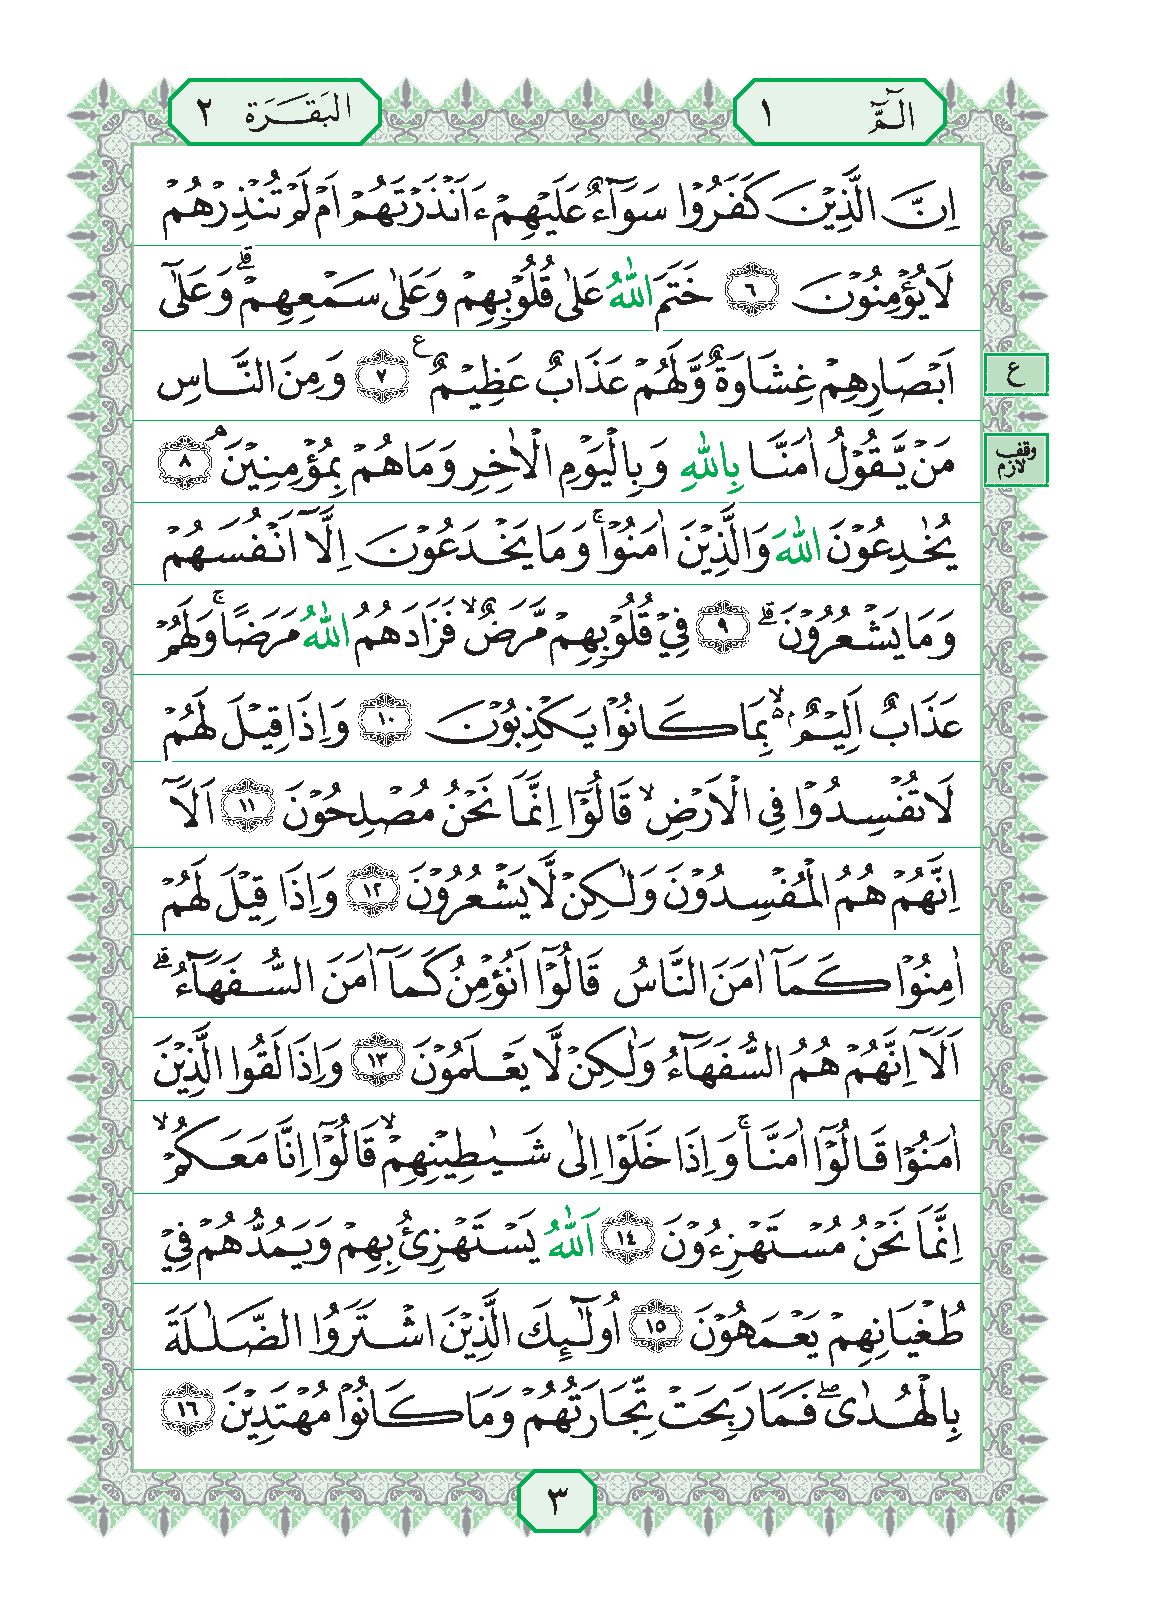 الٓمّٓ ١
البَقَرَة ٢
اِنَّ الَّذِيْنَ كَفَرُوْا سَوَآءٌ عَلَيْهِمْ ءَاَنْذَرْتَهُمْ اَمْ لَمْ تُنْذِرْهُمْ
لَا يُؤْمِنُوْنَ ۶ خَتَمَ اللّٰهُ عَلٰى قُلُوْبِهِمْ وَعَلٰى سَمْعِهِمْ ۗ وَعَلٰٓى
اَبْصَارِهِمْ غِشَاوَةٌ وَّلَهُمْ عَذَابٌ عَظِيْمٌ ع ۷ وَمِنَ النَّاسِ
ع
مَنْ يَّقُوْلُ اٰمَنَّا بِاللّٰهِ وَبِالْيَوْمِ الْاٰخِرِ وَمَا هُمْ بِمُؤْمِنِيْنَ ۘ ۸
وقف لازم
يُخٰدِعُوْنَ اللّٰهَ وَالَّذِيْنَ اٰمَنُوْا ۚ وَمَا يَخْدَعُوْنَ اِلَّآ اَنْفُسَهُمْ
وَمَا يَشْعُرُوْنَ ۗ ۹ فِيْ قُلُوْبِهِمْ مَّرَضٌ ۙ فَزَادَهُمُ اللّٰهُ مَرَضًا ۚ وَلَهُمْ
عَذَابٌ اَلِيْمٌ ۢ ۙ۬ بِمَا كَانُوْا يَكْذِبُوْنَ ۱۰ وَاِذَا قِيْلَ لَهُمْ
لَا تُفْسِدُوْا فِى الْاَرْضِ ۙ قَالُوْٓا اِنَّمَا نَحْنُ مُصْلِحُوْنَ ۱۱ اَلَآ
اِنَّهُمْ هُمُ الْمُفْسِدُوْنَ وَلٰكِنْ لَّا يَشْعُرُوْنَ ۱۲ وَاِذَا قِيْلَ لَهُمْ
اٰمِنُوْا كَمَآ اٰمَنَ النَّاسُ قَالُوْٓا اَنُؤْمِنُ كَمَآ اٰمَنَ السُّفَهَآءُ ۗ
اَلَآ اِنَّهُمْ هُمُ السُّفَهَآءُ وَلٰكِنْ لَّا يَعْلَمُوْنَ ۱۳ وَاِذَا لَقُوا الَّذِيْنَ
اٰمَنُوْا قَالُوْٓا اٰمَنَّا ۚ وَاِذَا خَلَوْا اِلٰى شَيٰطِيْنِهِمْ ۙ قَالُوْٓا اِنَّا مَعَكُمْ ۙ
اِنَّمَا نَحْنُ مُسْتَهْزِءُوْنَ ۱٤ اَللّٰهُ يَسْتَهْزِئُ بِهِمْ وَيَمُدُّهُمْ فِيْ
طُغْيَانِهِمْ يَعْمَهُوْنَ ۱۵ اُولٰٓئِكَ الَّذِيْنَ اشْتَرَوُا الضَّلٰلَةَ
بِالْهُدٰى ۖ فَمَا رَبِحَتْ تِّجَارَتُهُمْ وَمَا كَانُوْا مُهْتَدِيْنَ ۱٦
۳